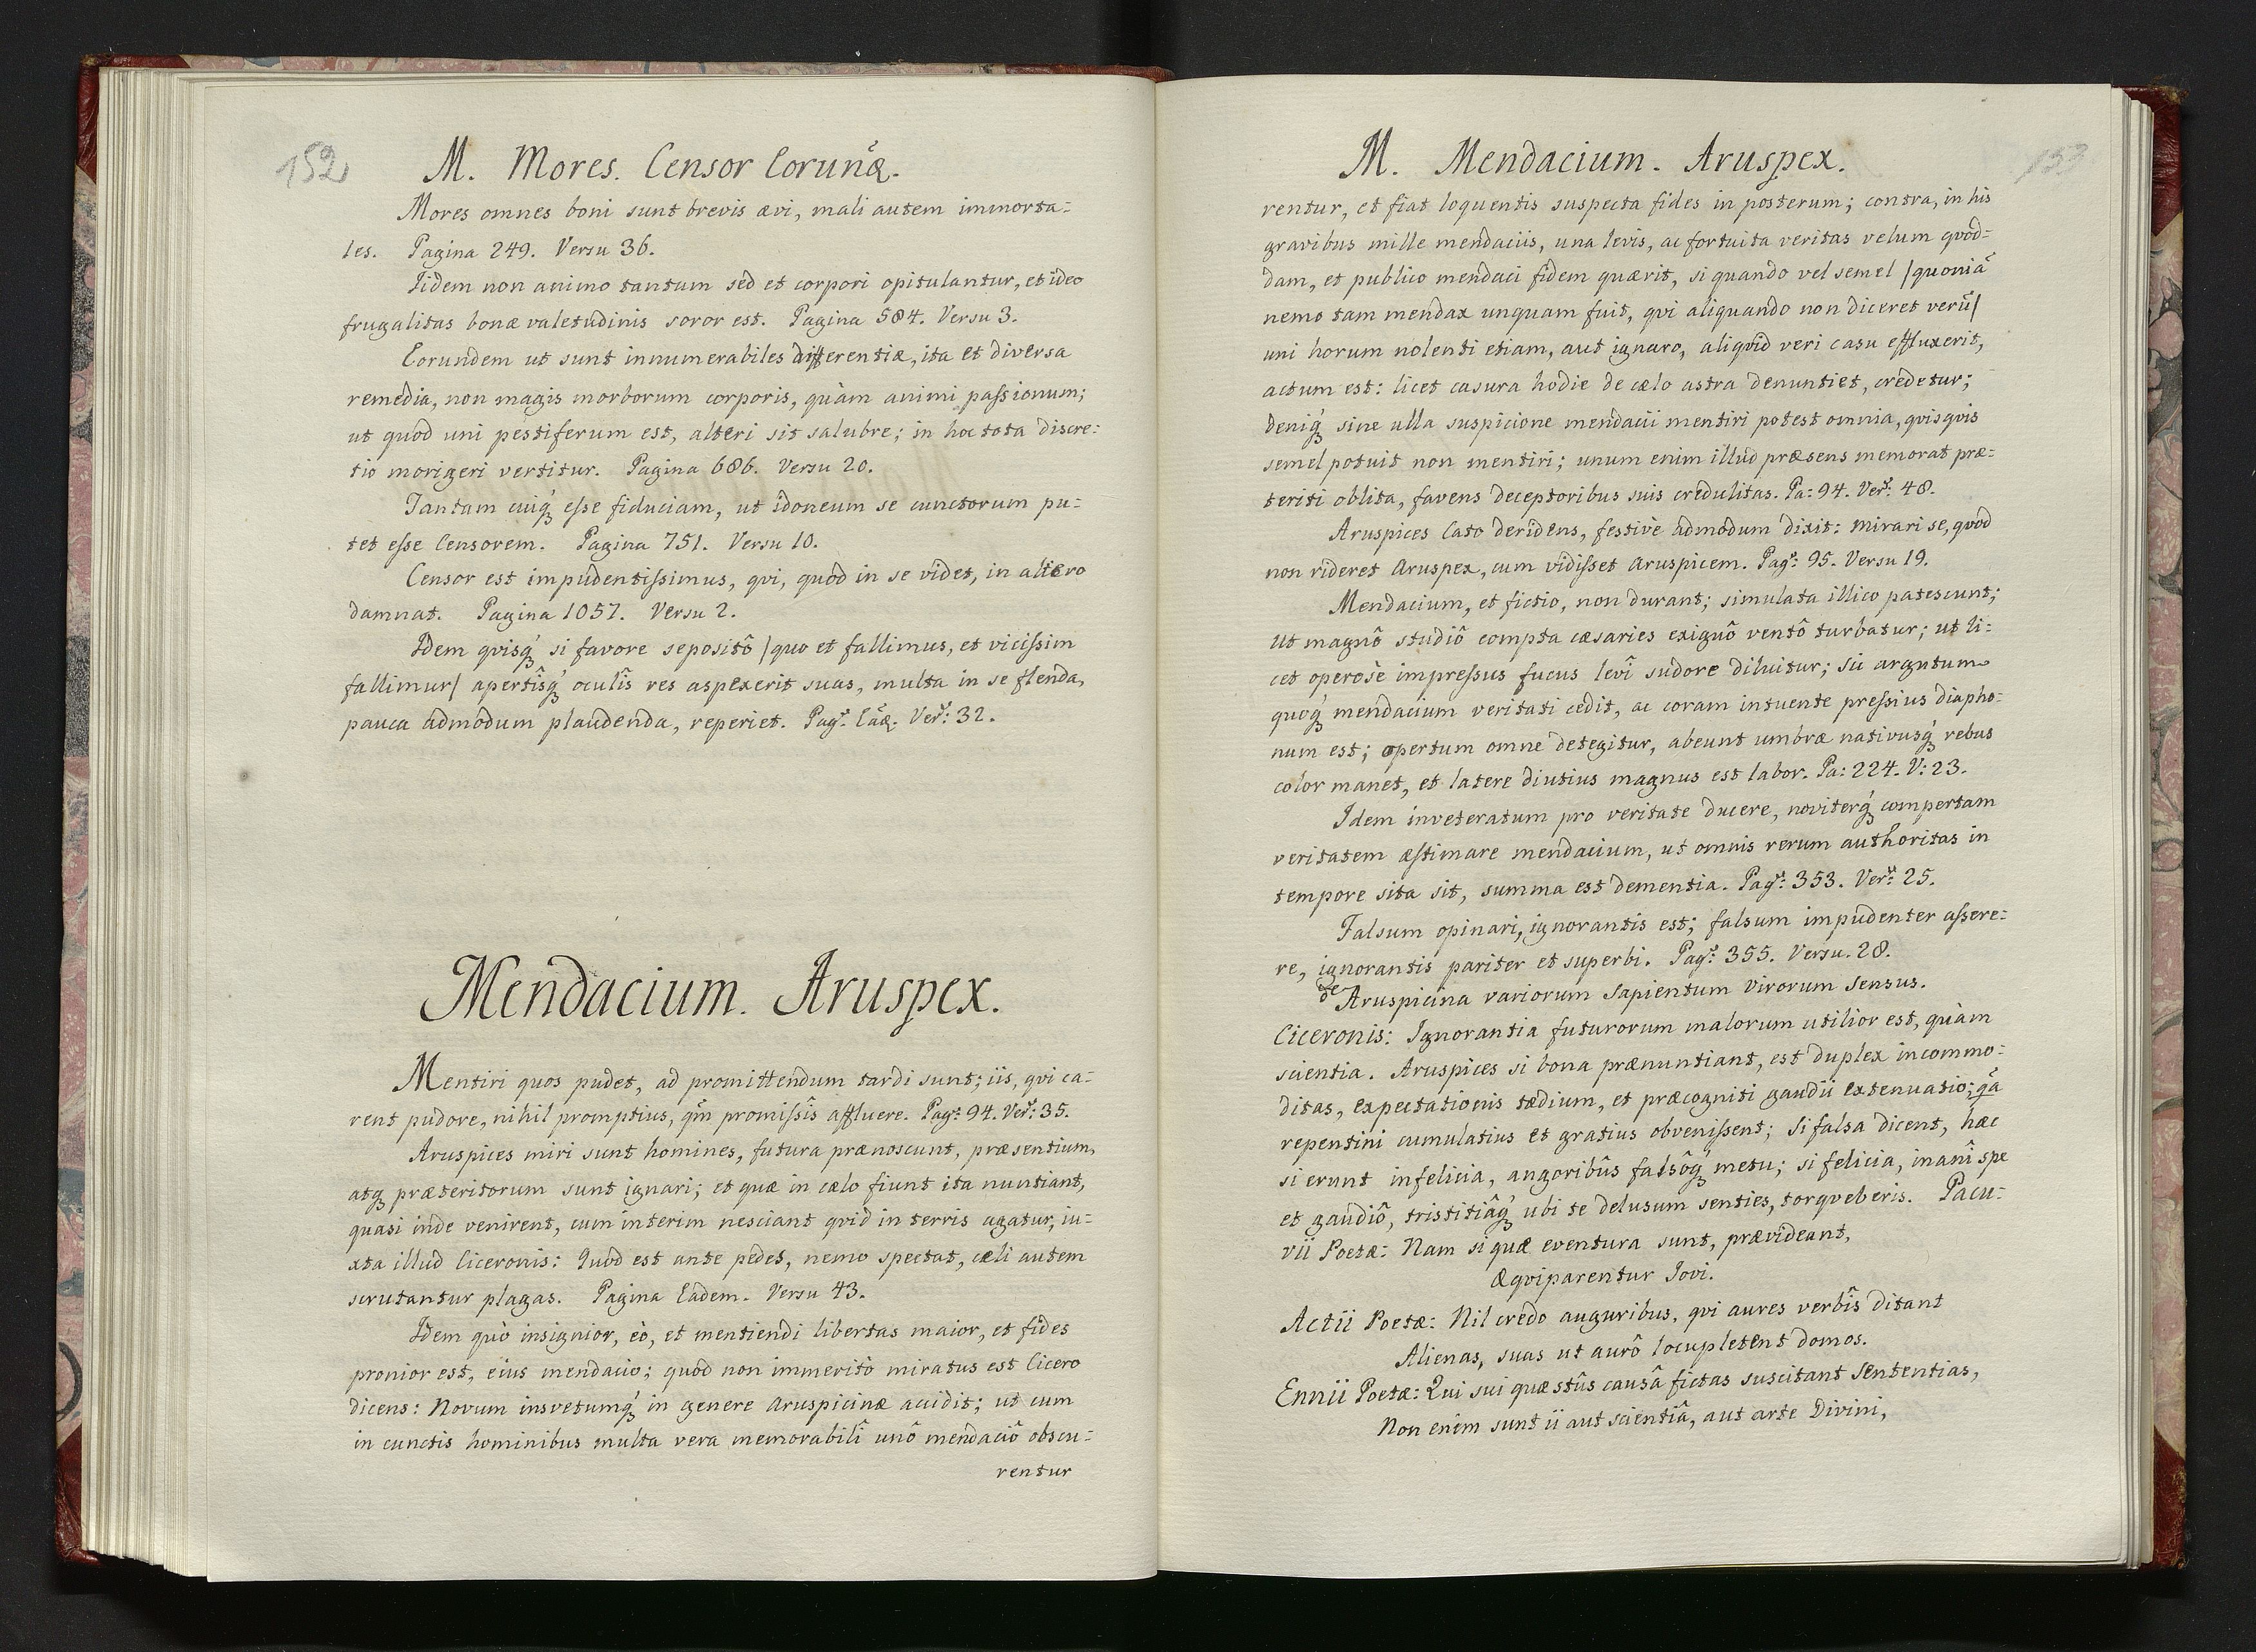 152
M. Mores. Censor Eorunđ.
Mores omnes boni sunt brevis ævi, mali autem immorta=
les. Pagina 249. Versu 36.
Iidem non animo tantum sed et corpori opitulantur, et ideo
frugalitas bonæ valetudinis soror est. Pagina 584. Versu 3.
Eorundem ut sunt innumerabiles differentiæ, ita et diversa
remedia, non magis morborum corporis, quàm animi passionum;
ut quod uni pestiferum est, alteri sit salubre; in hoc tota discre=
tio morigeri vertitur. Pagina 686. Versu 20.
Tantam cuiq́ȝ esse fiduciam, ut idoneum se cunctorum pu=
tet esse Censorem. Pagina 751. Versu 10.
Censor est impudentissimus, qvi, quod in se videt, in altero
damnat. Pagina 1057. Versu 2.
Idem qvisq́ȝ si favore sepositô /quo et fallimus, et vicissim
fallimur/ apertîsq́ȝ oculîs res aspexerit suas, multa in se flenda,
pauca admodum plaudenda, reperiet. Pag: Eâđ. Ver: 32.
Mendacium. Aruspex.
Mentiri quos pudet, ad promittendum tardi sunt; iis, qvi ca=
rent pudore, nihil promptius, qm̃ promissîs affluere. Pag: 94. Ver: 35.
Aruspices miri sunt homines, futura prænoscunt, præsentium,
atqȝ præteritorum sunt ignari; et quæ in cælo fiunt ita nuntiant,
quasi inde venirent, cum interim nesciant qvid in terris agatur, iu=
xta illud Ciceronis: Quod est ante pedes, nemo spectat, cæli autem
scrutantur plagas. Pagina Eadem. Versu 43.
Idem quò insignior, eò, et mentiendi libertas maior, et fides
pronior est, eius mendacio; quod non immeritò miratus est Cicero
dicens: Novum insvetumq́ȝ in genere Aruspicinæ accidit; ut cum
in cunctis hominibus multa vera memorabilî unô mendaciô obscu=
rentur
M. Mendacium. Aruspex.
153
rentur, et fiat loquentis suspecta fides in posterum; contra, in his
gravibus mille mendaciis, una levis, ac fortuita veritas velum qvod=
dam, et publico mendaci fidem quærit, si quando vel semel /quoniã
nemo tam mendax unquam fuit, qvi aliquando non diceret verũ/
uni horum nolenti etiam, aut ignaro, aliqvid veri casu effluxerit,
actum est: licet casura hodie de cælo astra denuntiet, credetur;
deniq́ȝ sine ulla suspicione mendacii mentiri potest omnia, qvisqvis
semel potuit non mentiri; unum enim illud præsens memorat præ=
teriti oblita, favens deceptoribus suis credulitas. Pa: 94. Ver: 48.
Aruspices Cato deridens, festivè admodum dixit: mirari se, qvod
non rideret Aruspex, cum vidisset Aruspicem. Pag: 95. Versu 19.
Mendacium, et fictio, non durant; simulata illico patescunt;
ut magnô studiô compta cæsaries exiguô ventô turbatur; ut li=
cet operosè impressus fucus levî sudore diluitur; sic argutum
quoq́ȝ mendacium veritati cedit, ac coram intuente pressius diapho=
num est; opertum omne detegitur, abeunt umbræ nativusq́ȝ rebus
color manet, et latere diutius magnus est labor. Pa: 224. V: 23.
Idem inveteratum pro veritate ducere, noviterq́ȝ compertam
veritatem æstimare mendacium, ut omnis rerum authoritas in
tempore sita sit, summa est dementia. Pag: 353. Ver: 25.
Falsum opinari, ignorantis est; falsum impudenter assere=
re, ignorantis pariter et superbi. Pag: 355. Versu. 28.
de Aruspicina variorum Sapientum Virorum Sensus.
Ciceronis: Ignorantia futurorum malorum utilior est, quàm
scientia. Aruspices si bona prænuntiant, est duplex incommo=
ditas, expectationis tædium, et præcogniti gaudii extenuatio; qã
repentini cumulatius et gratius obvenissent; Si falsa dicent, hæc
si erunt infelicia, angoribûs falsôq́ȝ metu; si felicia, inanî spe
et gaudiô, tristitiâq́ȝ ubi te delusum senties, torqveberis. Pacu=
vii Poetæ: Nam si quæ eventura sunt, prævideant,
Æqviparentur Jovi.
Actii Poetæ: Nil credo auguribus, qvi aures verbîs ditant
Alienas, suas ut aurô locupletent domos.
Ennii Poetæ: Qui sui quæstûs causâ fictas suscitant Sententias,
Non enim sunt ii aut scientiâ, aut arte Divini,